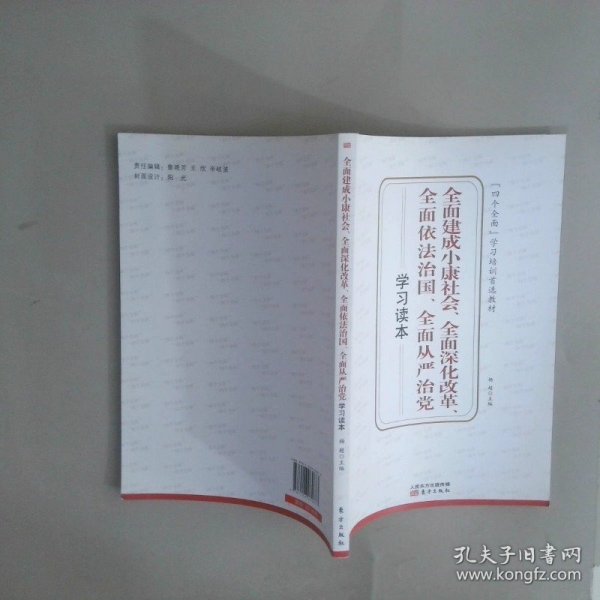 责任编辑：
封面设计：阳 光
全面建成小康社会、全面深化改革、全面依法治国、全面从严治党 学习读本
杨 超◎主编
东方出版社
「四个全面」学习培训首选教材
全面建成小康社会、全面深化改革、
全面依法治国、全面从严治党
学习读本
杨 超◎主编
人民东方出版传媒
东方出版社
孔夫子旧书网
www.kongfz.com